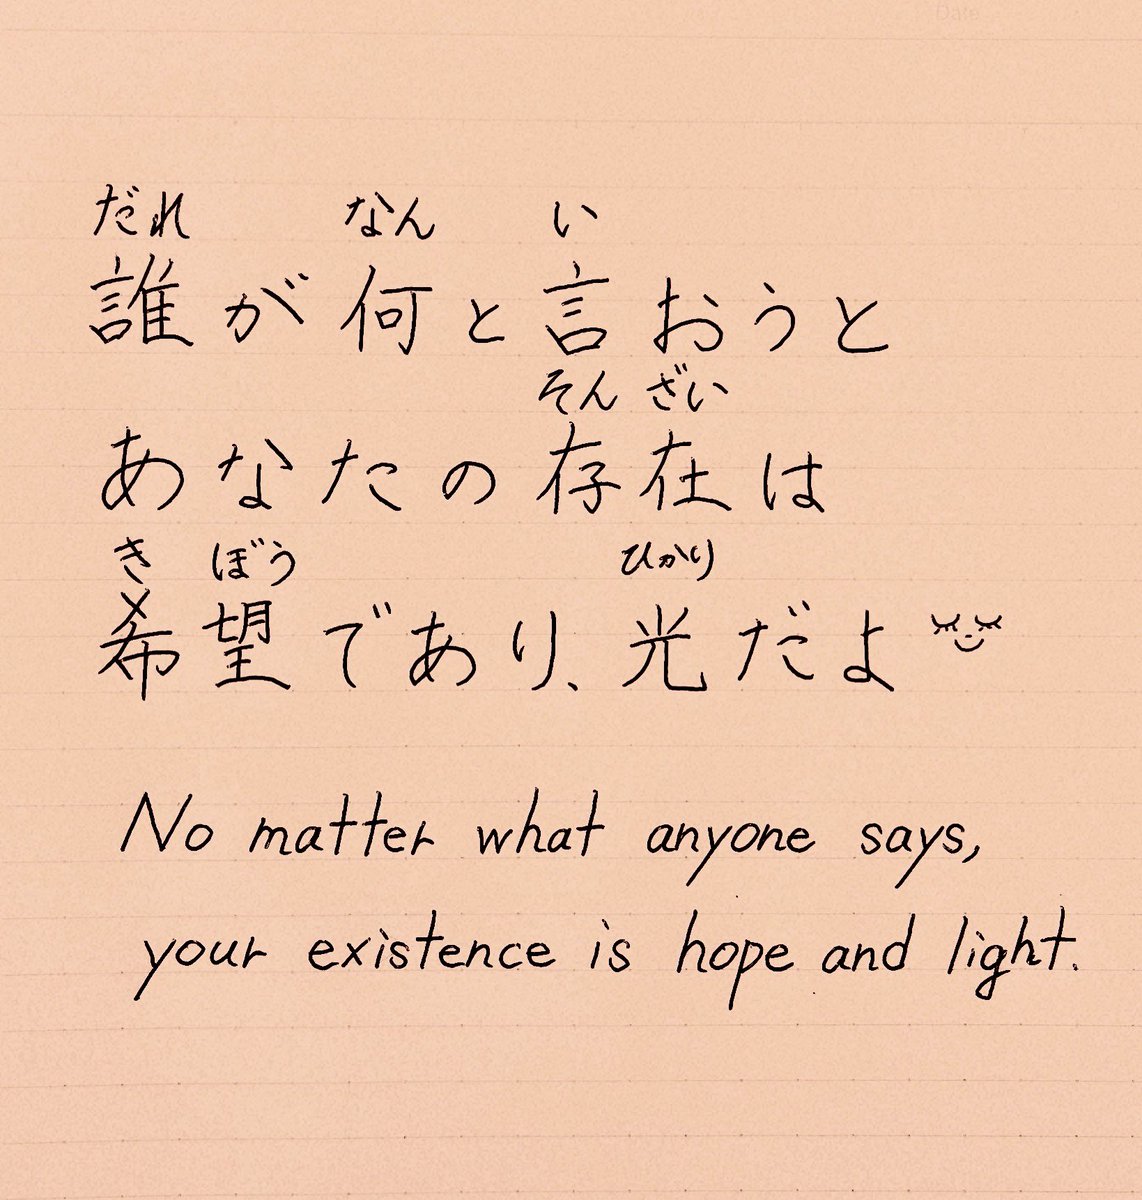 Date
だれ なん い
誰が何と言おうと
そんざい
あなたの存在は
きぼう ひかり
希望であり、光だよ
No matter what anyone says,
your existence is hope and light.